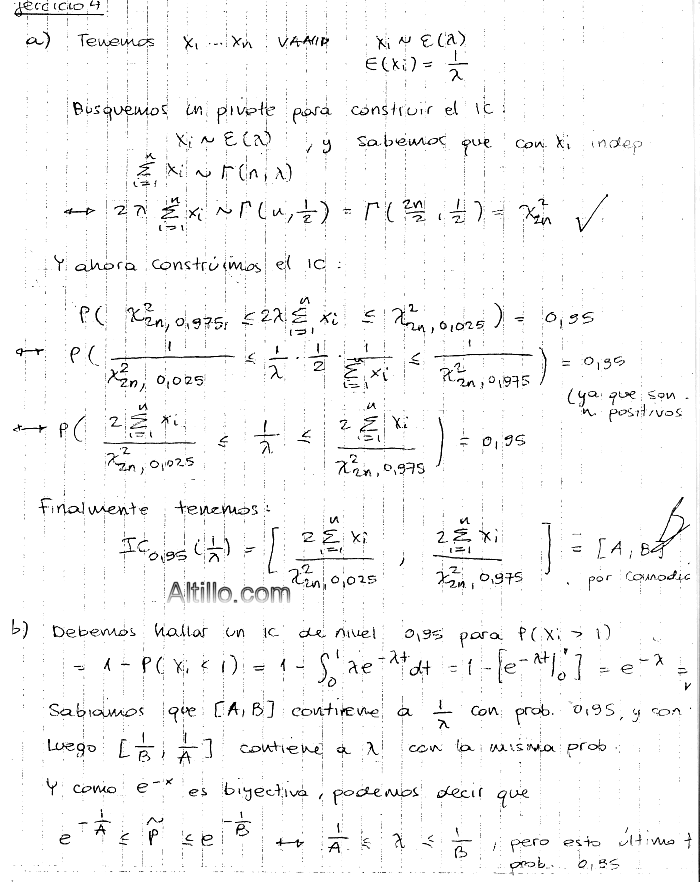 Ejercicio 4
a) Tenemos X₁ ... Xₙ VAAIID Xi ~ ε(λ)
E(Xi) = 1/λ
Busquemos un pivote para construir el IC:
Xi ~ ε(λ) , y sabemos que con Xi indep
∑ᵢ₌₁ⁿ Xi ~ Γ(n, λ)
↔ 2λ ∑ᵢ₌₁ⁿ Xi ~ Γ(n, 1/2) = Γ(2n/2, 1/2) = χ²₂ₙ ✓
Y ahora construimos el IC:
P( χ²₂ₙ, 0,975, ≤ 2λ ∑ᵢ₌₁ⁿ Xi ≤ χ²₂ₙ, 0,025 ) = 0,95
↔ P( 1/χ²₂ₙ, 0,025 ≤ 1/λ · 1/2 · 1/∑ᵢ₌₁ⁿ Xi ≤ 1/χ²₂ₙ, 0,975 ) = 0,95
(ya que son
n. positivos
↔ P( 2∑ᵢ₌₁ⁿ Xi / χ²₂ₙ, 0,025 ≤ 1/λ ≤ 2∑ᵢ₌₁ⁿ Xi / χ²₂ₙ, 0,975 ) = 0,95
Finalmente tenemos:
IC₀,₉₅(1/λ) = [ 2∑ᵢ₌₁ⁿ Xi / χ²₂ₙ, 0,025 , 2∑ᵢ₌₁ⁿ Xi / χ²₂ₙ, 0,975 ] = [A, B]
por comodid
Altillo.com
b) Debemos hallar un IC de nivel 0,95 para P(Xi > 1)
= 1 - P(Xi < 1) = 1 - ∫₀¹ λe^(-λt) dt = 1 - [e^(-λt)|₀¹] = e^(-λ) =
Sabíamos que [A, B] contiene a 1/λ con prob. 0,95, y con
Luego [1/B, 1/A] contiene a λ con la misma prob.
Y como e^(-x) es biyectiva, podemos decir que
e^(-1/A) ≤ p̃ ≤ e^(-1/B) ↔ 1/A ≤ λ ≤ 1/B, pero esto último t
prob. 0,95